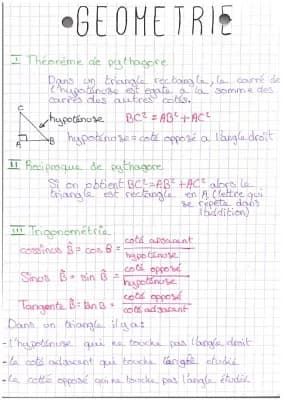 GEOMETRIE
I Théorème de pythagore
Dans un triangle rectangle, le carré de
l'hypoténuse est egale a la somme des
carrés des autres cotés.
C
hypoténuse
BC² = AB² + AC²
A
B
hypoténuse = coté opposé a l'angle droit
II Réciproque de pythagore
Si on obtient BC² = AB² + AC² alors le
triangle est rectangle en A (lettre qui
se repète dans
l'addition)
III Trigonométrie
cossinus B̂ = cos B̂ = coté adjacent
hypoténuse
Sinus B̂ = sin B̂ = coté opposé
hypoténuse
Tangente B̂ = tan B̂ = coté opposé
coté adjacent
Dans un triangle il y a :
- l'hypoténuse qui ne touche pas l'angle droit
- le coté adjacent qui touche l'angle étudié
- le cotté opposé qui ne touche pas l'angle étudié